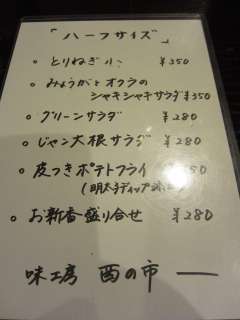 「ハーフサイズ」
。とりねぎ小 ¥350
。みょうがとオクラの
シャキシャキサラダ ¥350
。グリーンサラダ ¥280
。じゃこ大根サラダ ¥280
。皮つきポテトフライ 50
(明太子ディップ
。お新香盛り合せ ¥280
味工房 酉の市